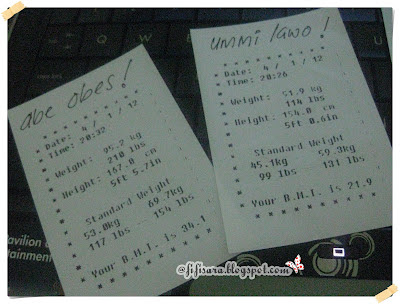 abe obes!
Date: 4 / 1 / 12
Time: 20:32
Weight: 95.2 kg
210 lbs
Height: 167.0 cm
5ft 5.7in
Standard Weight
53.0kg 69.7kg
117 lbs 154 lbs
Your B.M.I. is 34.1
ummi lawo!
Date: 4 / 1 / 12
Time: 20:26
Weight: 51.9 kg
114 lbs
Height: 154.0 cm
5ft 0.6in
Standard Weight
45.1kg 59.3kg
99 lbs 131 lbs
Your B.M.I. is 21.9
Pavilion
tertainment
@fifisara.blogspot.com